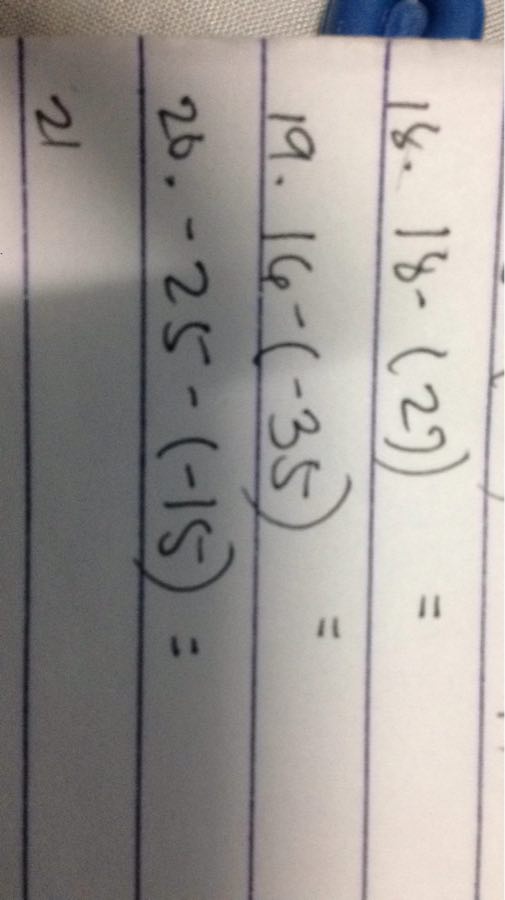 18. 18 - (27) =
19. 16 - (-35) =
20. -25 - (-15) =
21